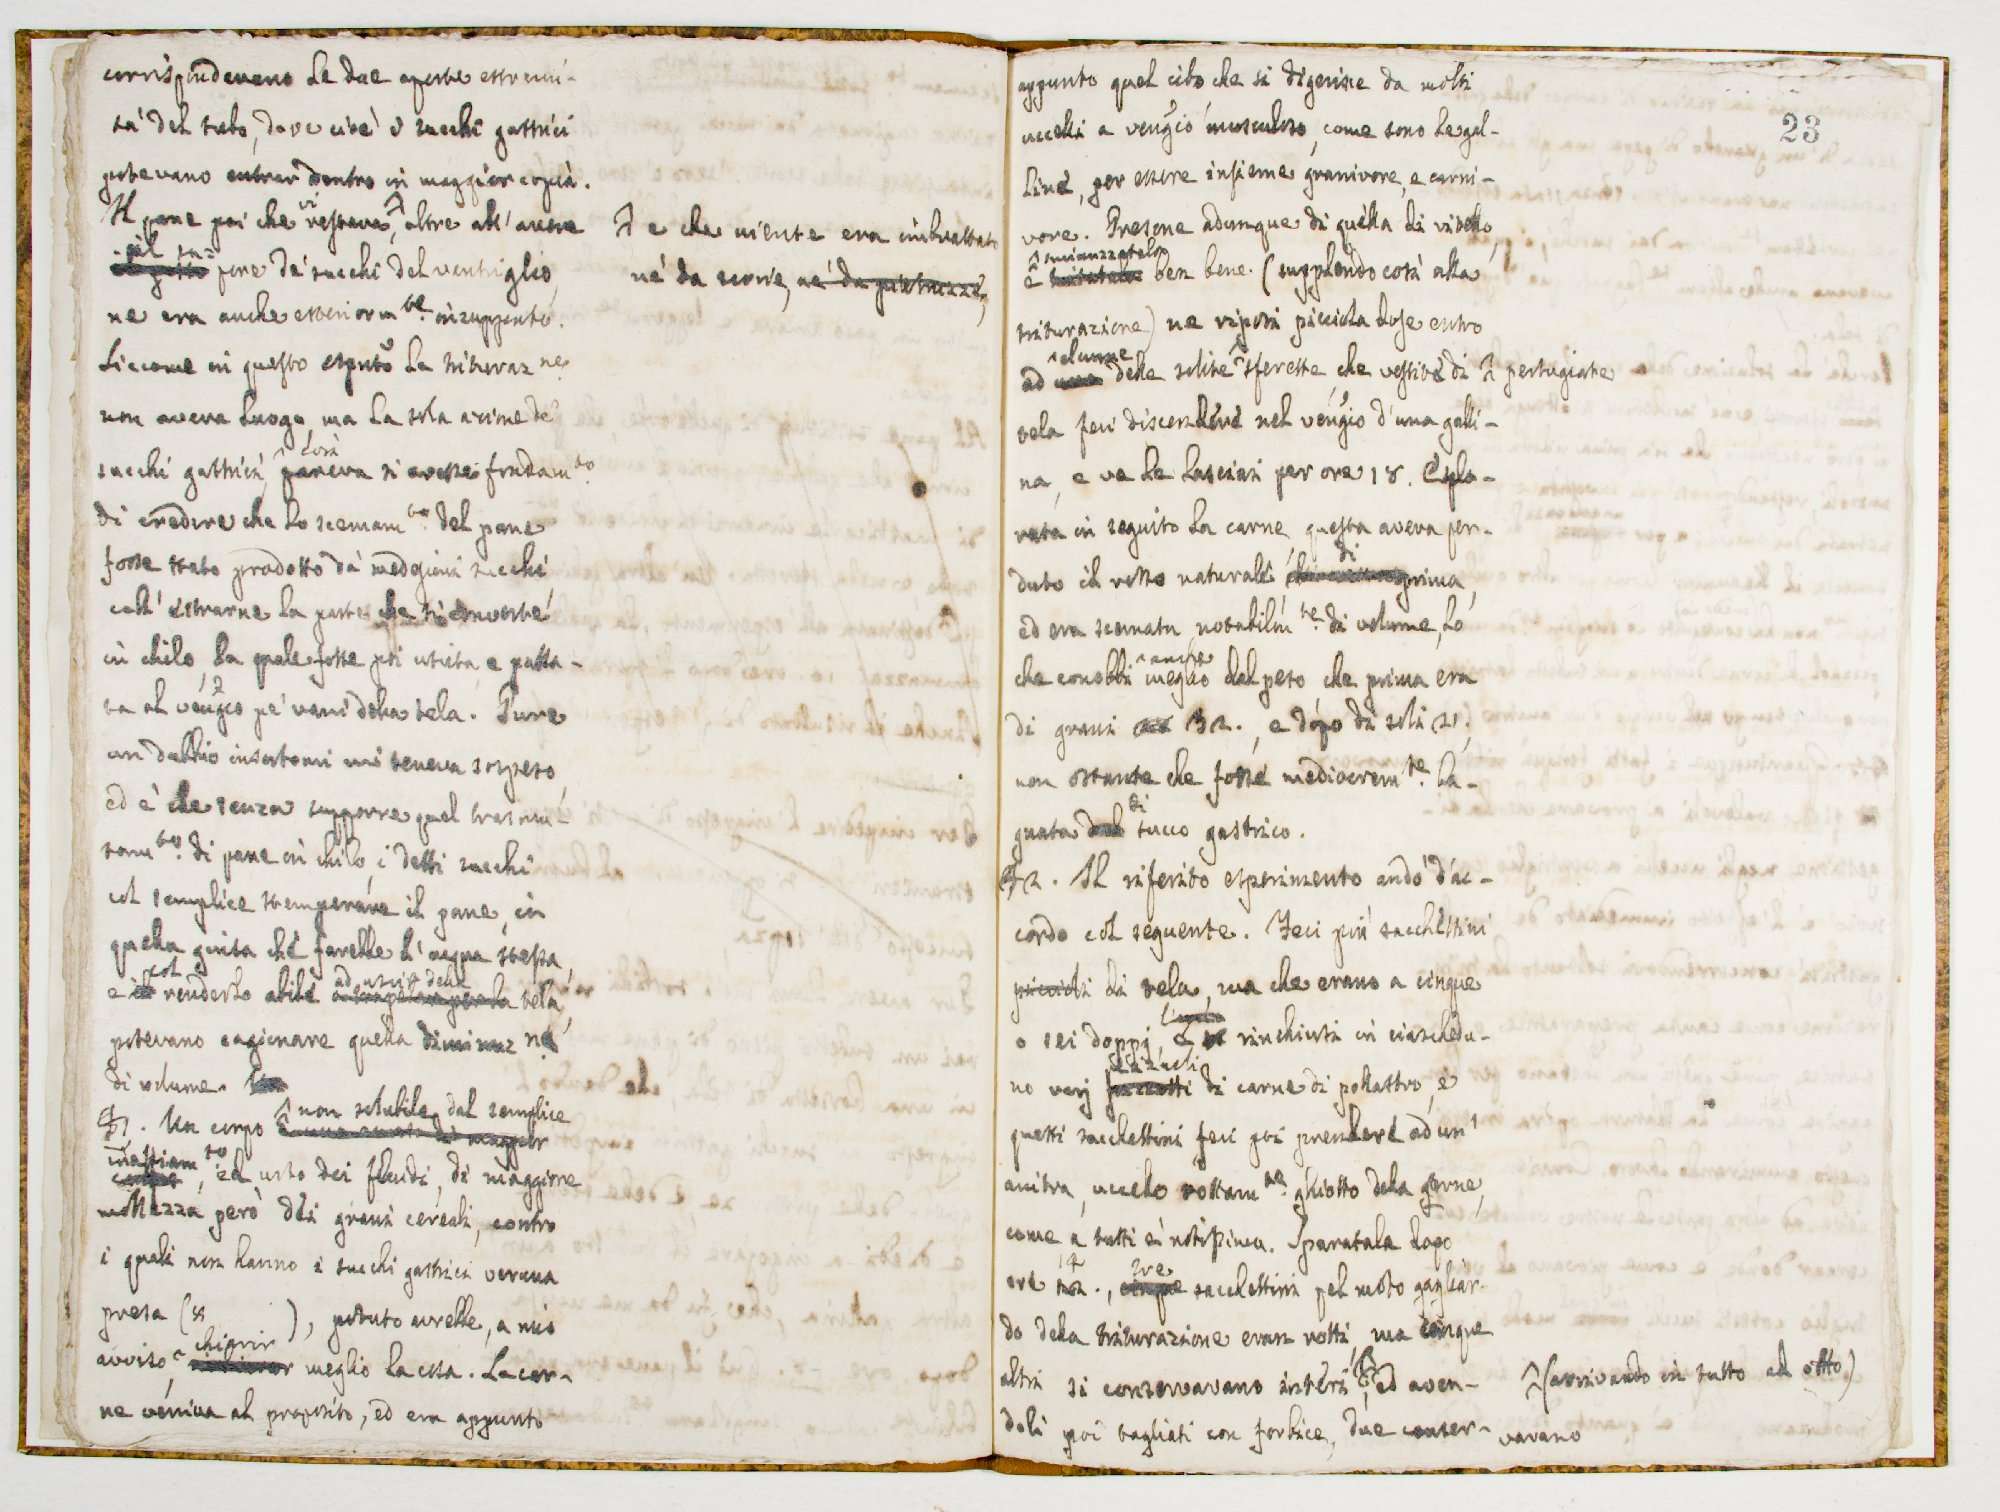 corrispondevano le due aperte estremi-
tà del tubo, dove cioè i succhi gastrici
potevano entrar dentro in maggior copia.
Il pane poi che vi restava, oltre all' avere
il sa-
pore de' succhi del ventriglio,
ne era anche esteriorm.te inzuppato.
Siccome in questo esputo la trituraz.ne
non aveva luogo, ma la sola azione de'
così
succhi gastrici, pareva si avesse fondam.to
di credere che lo scemam.to del pane
fosse stato prodotto da' medesimi succhi
coll' estrarne la parte che si converte
in chilo, la quale fosse poi uscita, e passa-
ta al vengio pe' vani della tela. Pure
un dubbio insortomi mi teneva sospeso,
ed è che senza supporre quel trasmu-
tam.to di pane in chilo, i detti succhi
col semplice stemperare il pane, in
quella guisa che farebbe l' acqua stessa,
e col renderlo abile ad uscir della tela,
potevano cagionare quella diminuz.ne
di volume.
non solubile dal semplice
51. Un corpo
inaffiam.to, ed urto dei fluidi, di maggiore
mollezza però dei grani cereali, contro
i quali non hanno i succhi gastrici veruna
presa (§ ), potuto avrebbe, a mio
chiarir
avviso, meglio la cosa. La car-
ne veniva al proposito, ed era appunto
e che niente era imbrattato
nè da scorie, nè da pietruzze,
23
appunto quel cibo che si digerisce da molti
uccelli a vengio musculoso, come sono le gal-
line, per essere insieme granivore, e carni-
vore. Presone adunque di quella di vitello,
sminuzzatala
e tritatala ben bene (supplendo così alla
triturazione) ne riposi picciola dose entro
alcune
ad una delle solite sferette, che vestite di
pertugiate
tela feci discendere nel vengio d' una galli-
na, e ve le lasciai per ore 18. Esplo-
rata in seguito la carne, questa aveva per-
di
duto il rosso naturale, prima,
ed era scemata notabilm.te di volume, lo
anche
che conobbi meglio dal peso che prima era
di grani 32., e dopo di soli 21,
non ostante che fosse mediocrem.te ba-
di
gnata dal succo gastrico.
52. Il riferito esperimento andò d' ac-
cordo col seguente. Feci più sacchettini
piccioli di tela, ma che erano a cinque
o sei doppj, rinchiusi in ciaschedu-
no varj pezzetti di carne di pollastro, e
questi sacchettini feci poi prendere ad un'
anitra, uccello sommam.te ghiotto della carne,
come a tutti è notissimo. Sparatala dopo
tre
ore 12., cinque sacchettini pel moto gagliar-
do della triturazione eran rotti, ma cinque
altri si conservavano interi, ed aven-
(arrivando in tutto ad otto)
doli poi tagliati con forbice, due conser-
vavano